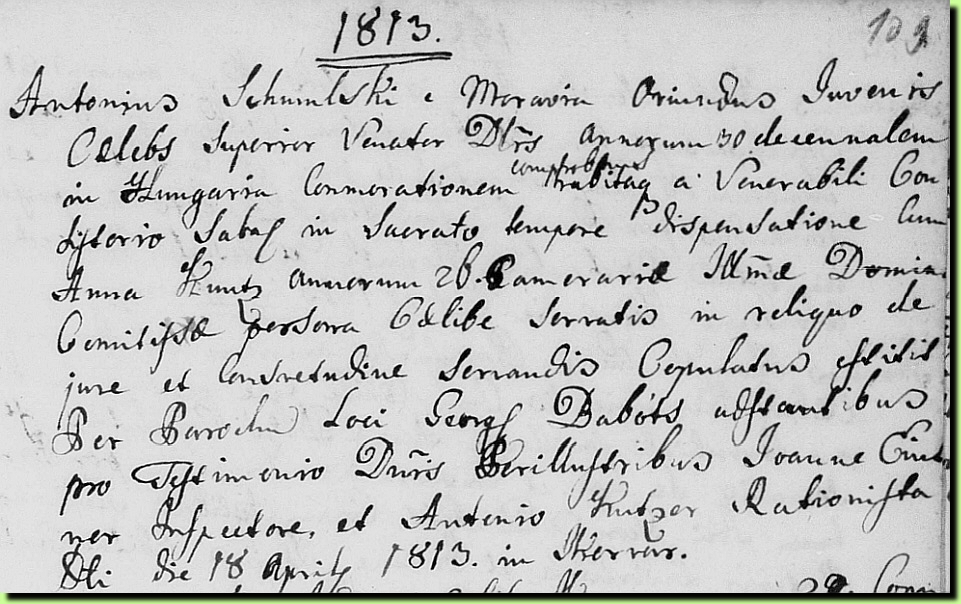 1813.
109
Antonius Schumlski e Moravia Oriundus Juvenis
Cœlebs Superior Venator Dñs annorum 30 decennalem
in Hungaria Conmorationem comprobans a Venerabili Con
sistorio Sabar in Sacrato tempore dispensatione Cum
Anna Kuntz annorum 26. Camerariæ Illmæ Domin
Comitissæ persona Cœlibe servatis in reliquo de
jure et Consvetudine servandis Copulatus estitit
Per Paroch Loci Georg Dabóts adstantibus
pro Testimonio Dnis Perillustribus Joanne
ner Inspectore, et Antonio Kutzer Rationista
die 18 Aprilis 1813. in